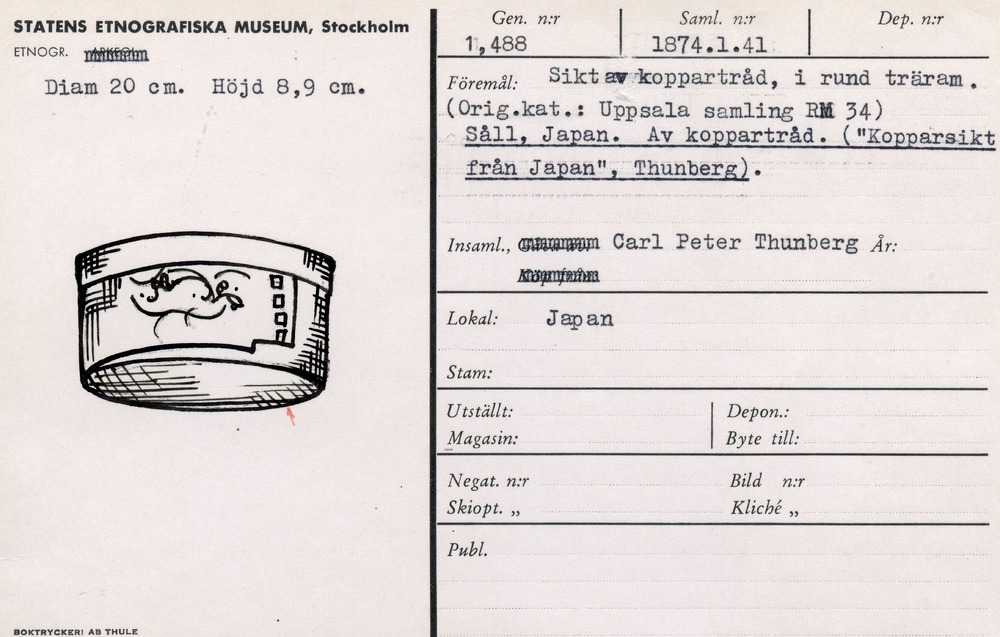 STATENS ETNOGRAFISKA MUSEUM, Stockholm
ETNOGR.
Diam 20 cm. Höjd 8,9 cm.
BOKTRYCKERI AB THULE
Gen. n:r
1,488
Saml. n:r
1874.1.41
Dep. n:r
Föremål: Sikt av koppartråd, i rund träram.
(Orig.kat.: Uppsala samling RM 34)
Såll, Japan. Av koppartråd. ("Kopparsikt
från Japan", Thunberg).
Insaml., Carl Peter Thunberg År:
Lokal: Japan
Stam:
Utställt: Depon.:
Magasin: Byte till:
Negat. n:r Bild n:r
Skiopt. „ Kliché „
Publ.